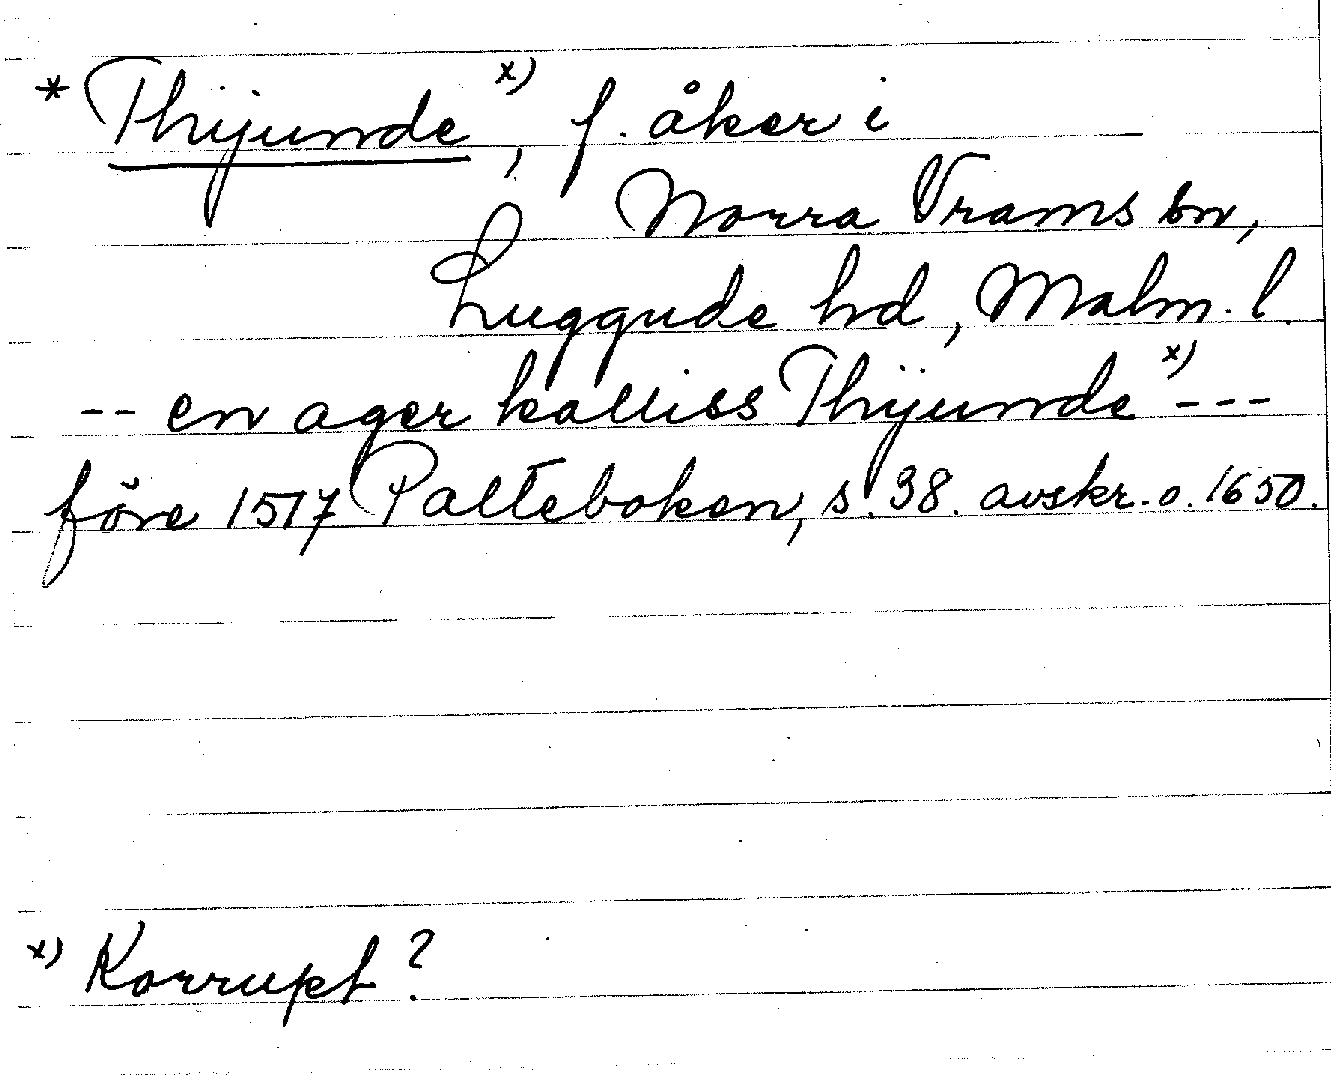 * Thijunde x), f. åker i
Norra Vrams sn,
Luggude hd, Malm. l.
-- en ager kalliss Thijunde x) ---
före 1517 Palteboken, s. 38. avskr. o. 1650.
x) Korrupt?